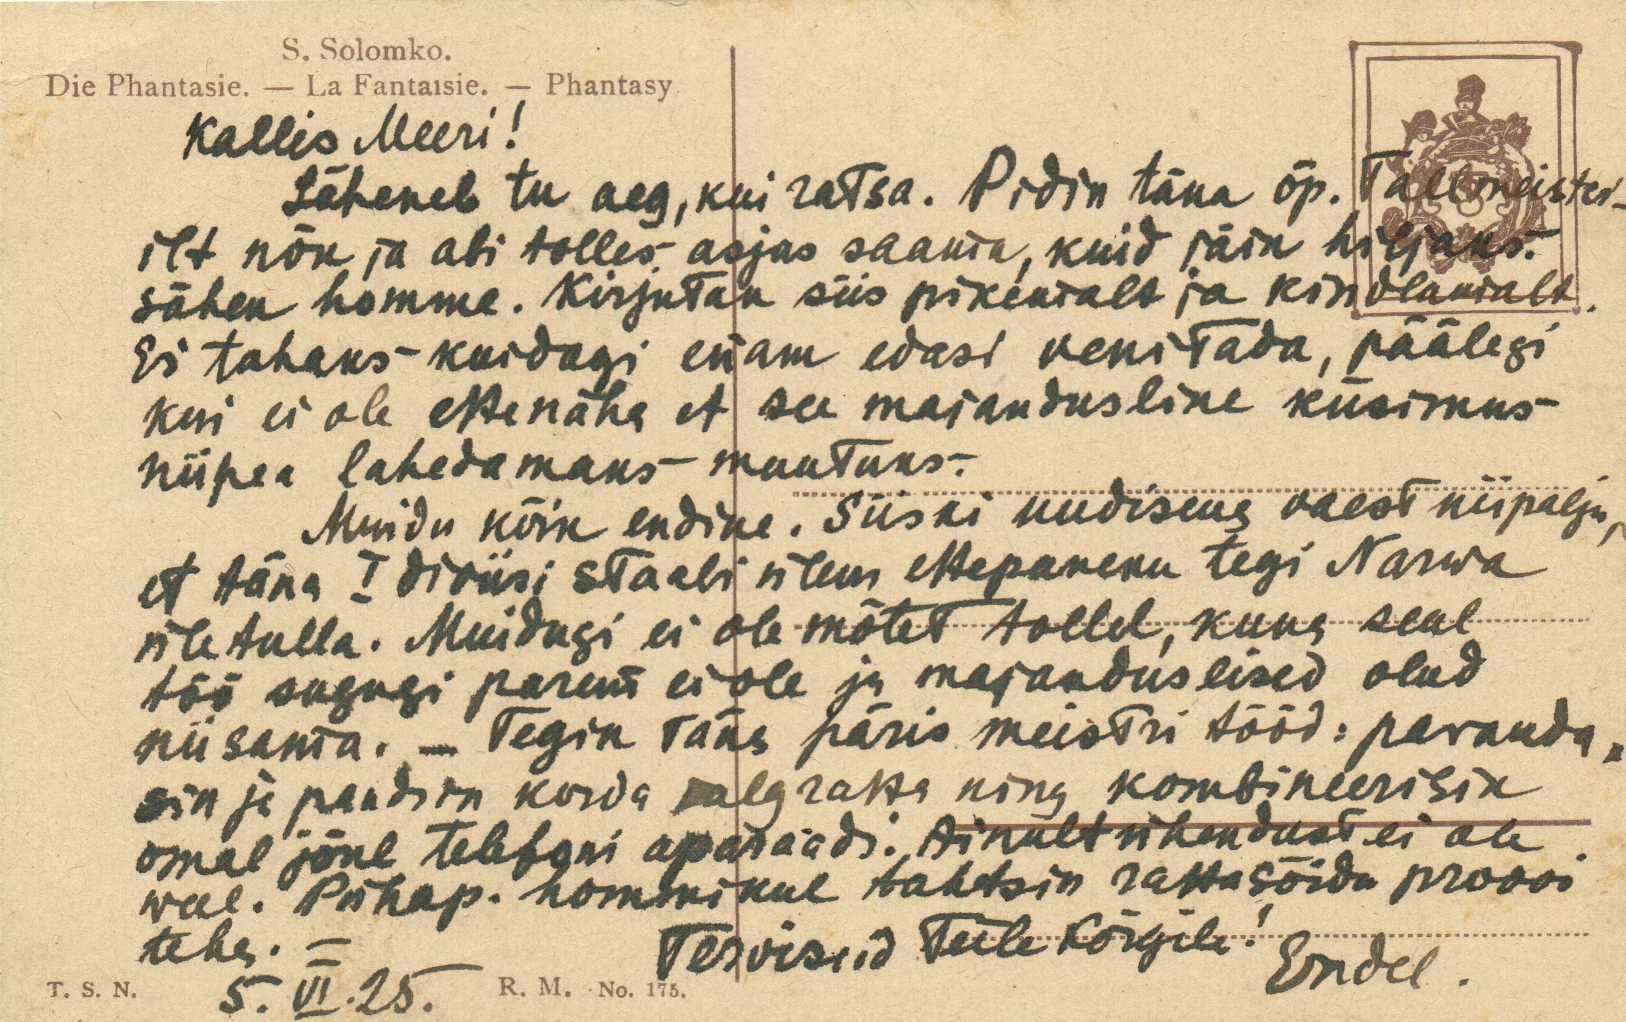 S. Solomko.
Die Phantasie. — La Fantaisie. — Phantasy
Kallis Meeri!
Läheneb tu aeg, kui ratsa. Pidin täna õp. Tallmeistri-
ilt nõu ja abi tolles asjas saama, kuid jäin hiljaks.
Lähen homme. Kirjutan siis pikemalt ja kindlamalt.
Ei tahaks kuidagi enam edasi venitada, päälegi
kui ei ole ettenäha et see majandusline küsimus
niipea lahedamaks muutuks.
Muidu kõik endine. Siiski uudisena vaest niipalju,
et täna I diviisi staabi ülem ettepaneku tegi Narwa
üle tulla. Muidugi ei ole mõtet tollel, kuna seal
töö sugugi parem ei ole ja majanduslised olud
niisama. — Tegin täna päris meistri tööd: paranda-
sin ja pandsin korda jalgratta ning kombineerisin
omal jõul telefoni aparaadi. Ainult ühendust ei ole
weel. Pühap. hommikul tahtsin rattasõidu proovi
teha. —
Terviseid Teile Kõigile!
Endel.
5. VI. 25.
T. S. N.
R. M. No. 175.